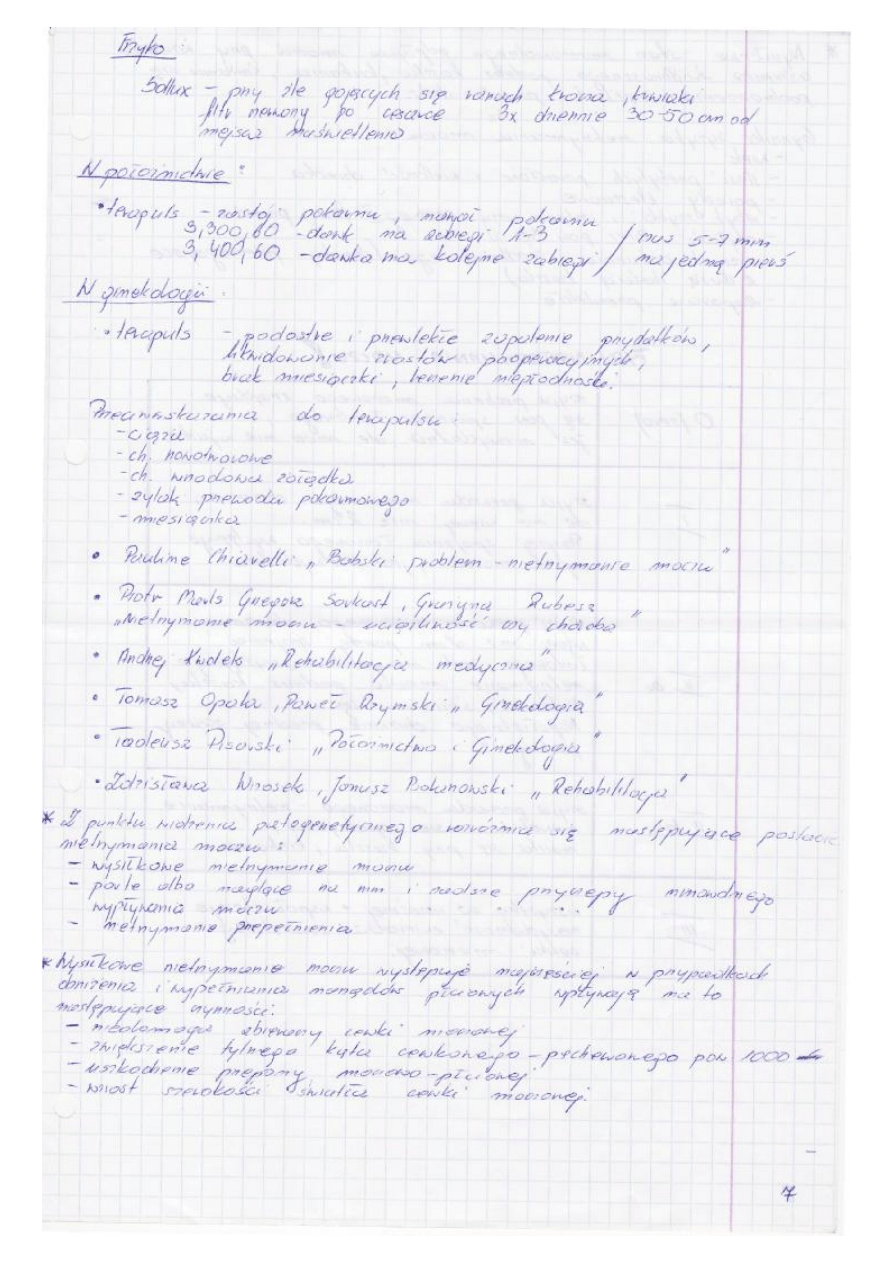 Fizyko
Sollux – przy źle gojących się ranach krocza, krwiaki
filtr czerwony po cesarce 3x dziennie 30-50 cm od
miejsca naświetlenia
W położnictwie:
• terapuls – zastój pokarmu, nawał pokarmu
3,300,60 – dawk na zabiegi 1-3 / czas 5-7 min
3,400,60 – dawka na kolejne zabiegi / na jedną pierś
W ginekologii:
• terapuls – podostre i przewlekłe zapalenie przydatków,
likwidowanie zrostów pooperacyjnych,
brak miesiączki, leczenie niepłodności.
Przeciwskazania do terapulsu:
- ciąża
- ch. nowotworowe
- ch. wrzodowa żołądka
- żylaki przewodu pokarmowego
- miesiączka
• Pauline Chiarelli „Babski problem – nietrzymanie moczu"
• Piotr Grzegorz Surkont, Grażyna
„Nietrzymanie moczu – uciążliwość czy choroba"
• Andrzej Kwolek „Rehabilitacja medyczna"
• Tomasz Opala, Paweł Rzymski „Ginekologia"
• Tadeusz Pisarski „Położnictwo i Ginekologia"
• Zdzisława Wrzosek, Janusz Bolanowski „Rehabilitacja"
* Z punktu widzenia patogenetycznego rozróżnia się następujące postacie
nietrzymania moczu:
– wysiłkowe nietrzymanie moczu
– parte albo naglące na mm i rzadsze przyczepy mimowolnego
wypływania moczu
– nietrzymanie przepełnienia
* Wysiłkowe nietrzymanie moczu występuje najczęściej w przypadkach
obniżenia i wypełniania narządów płciowych wpływają na to
następujące czynności:
– niedomoga zbieraczy cewki moczowej
– zwiększenie tylnego kąta cewkowego – pochewowego pow 1000
– uszkodzenie przepony moczowo-płciowej
– wzrost szerokości światła cewki moczowej.
7